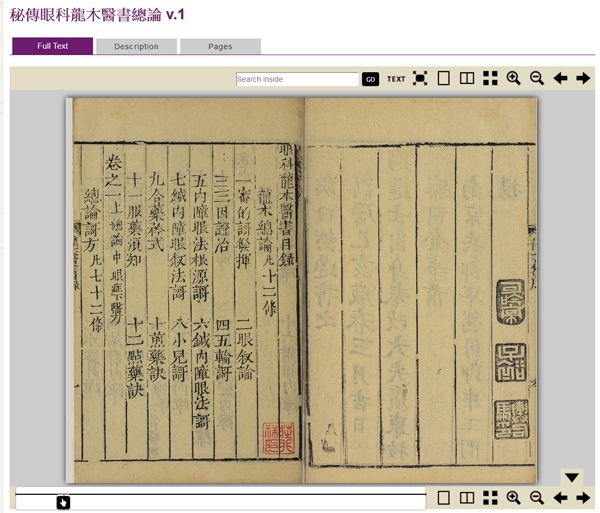 秘傳眼科龍木醫書總論 v.1
Full Text
Description
Pages
Search inside
GO
TEXT
眼科龍木醫書目錄
龍木總論凡十二條
一審的謌發揮 二眼叙論
三三因證治 四五輪謌
五內障眼法根源謌 六鍼內障眼法謌
七鍼內障眼叙法謌 八小兒謌
九合藥矜式 十煎藥訣
十一服藥須知 十二點藥訣
卷之一上總論中眼症下醫方
總論謌方凡七十二條